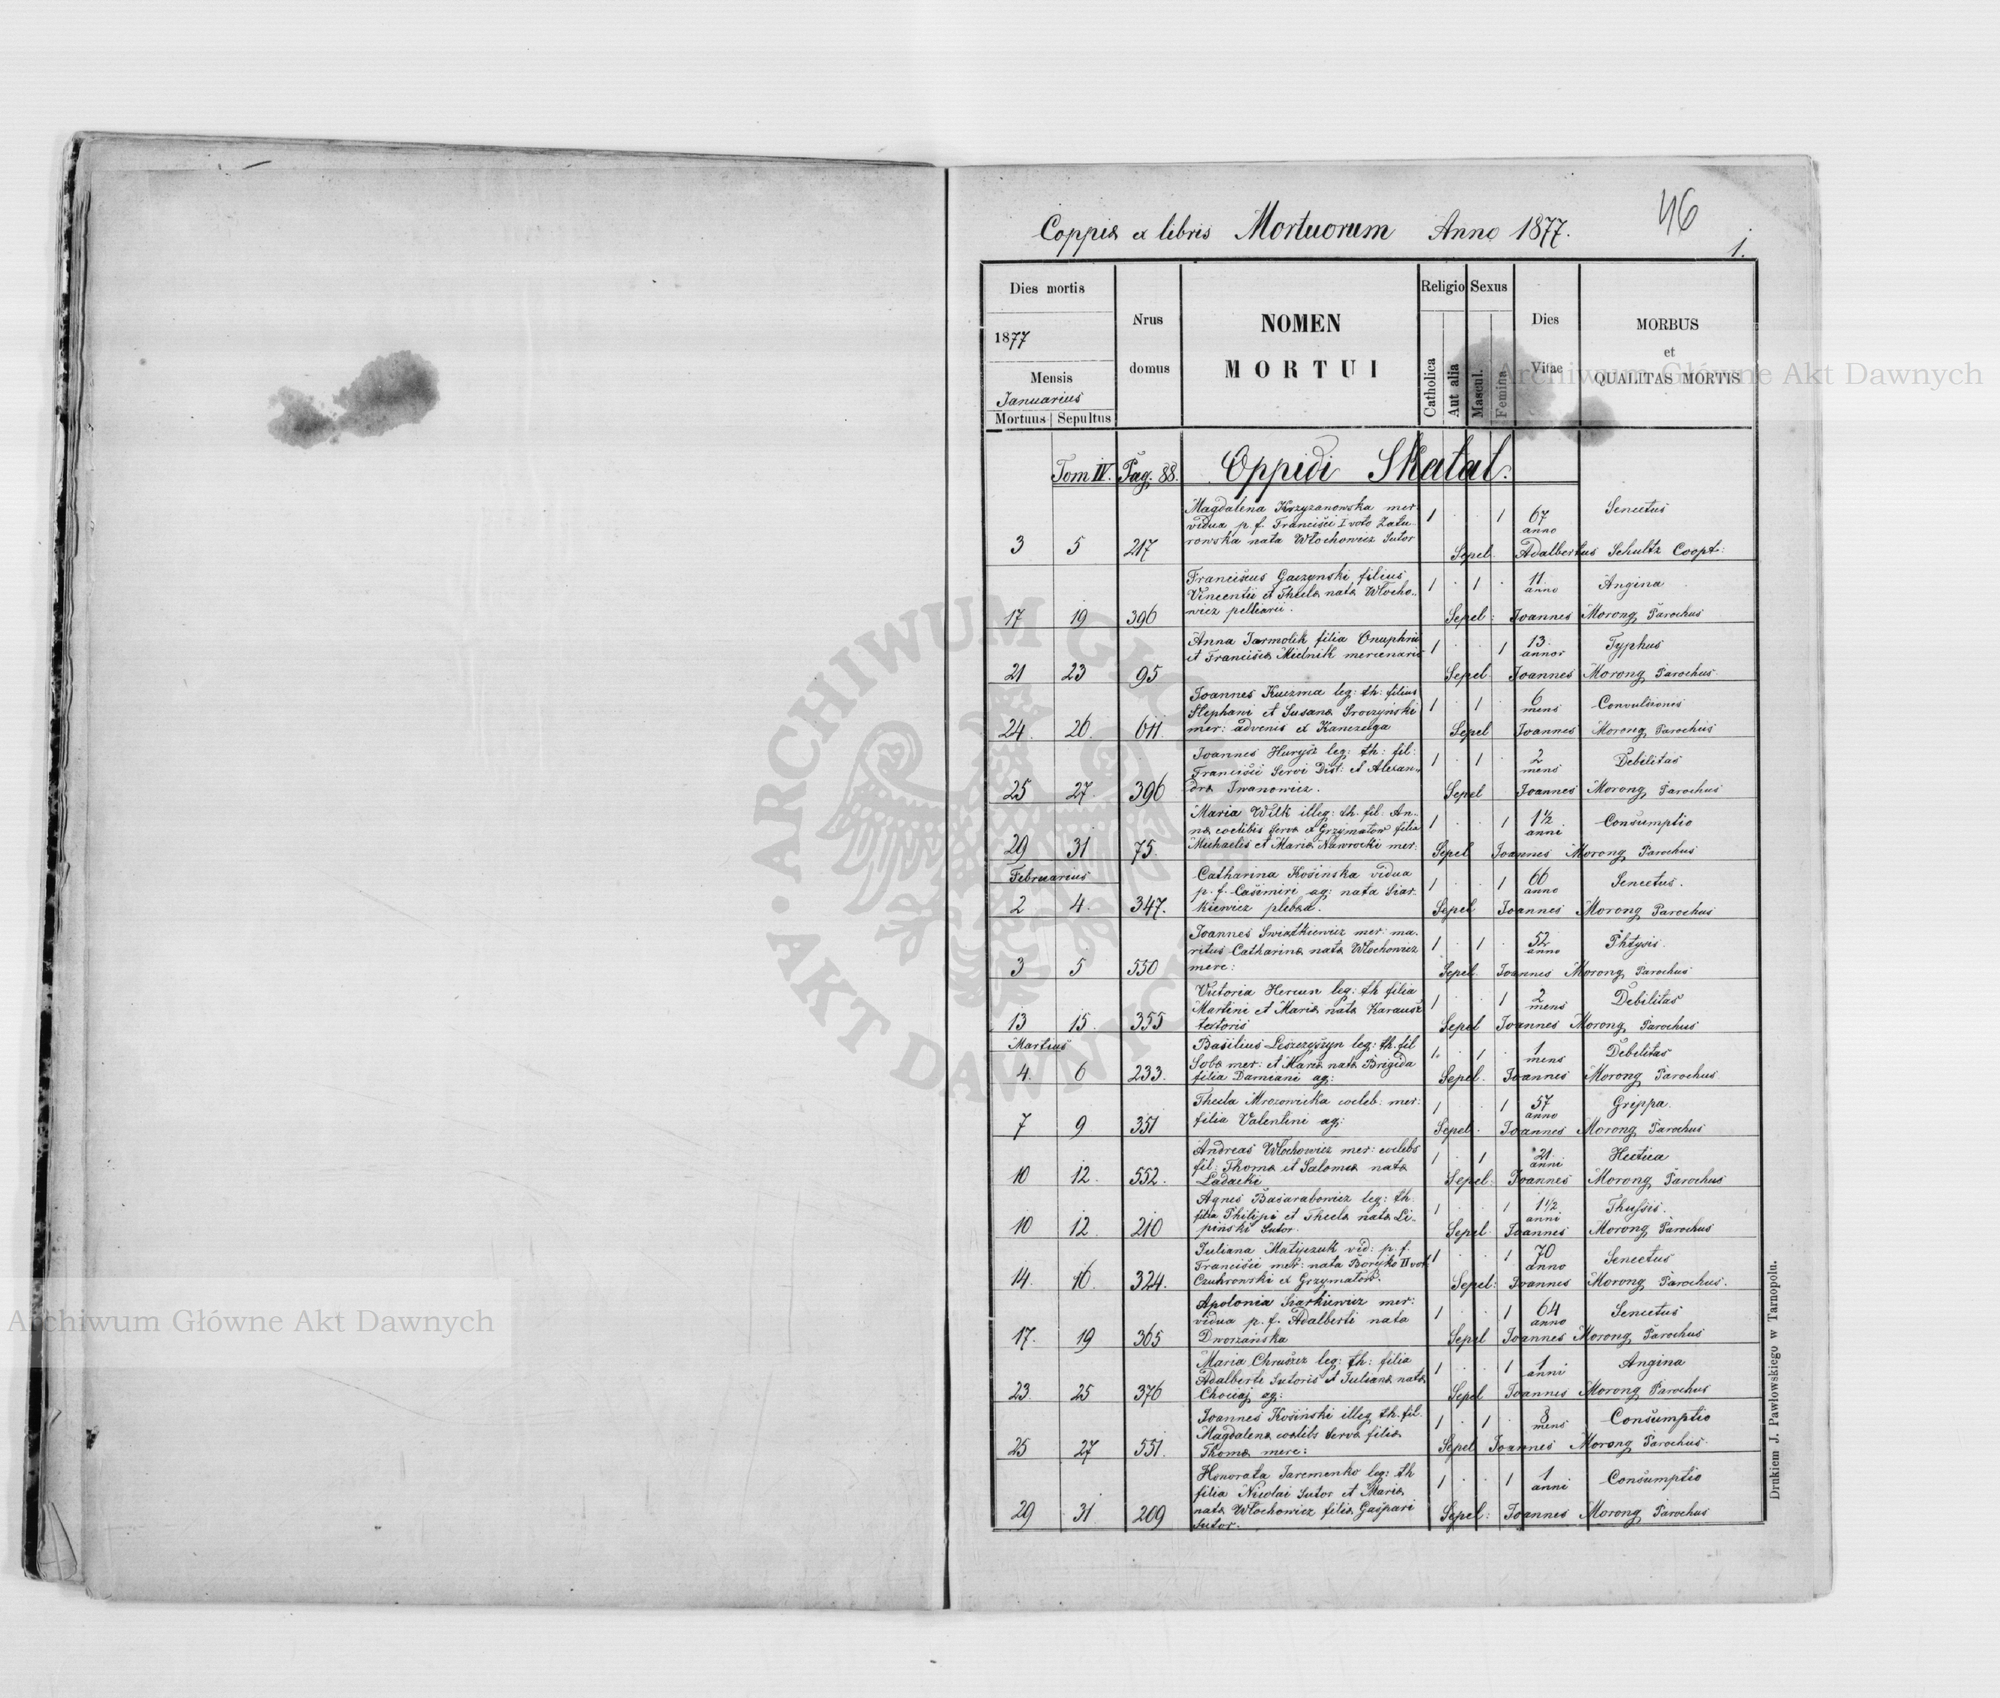 46
Coppia ex libris Mortuorum Anno 1877.
1.
Dies mortis
1877
Mensis
Januarius
Mortuus Sepultus
Nrus domus
NOMEN
MORTUI
Religio
Catholica
Aut alia
Sexus
Mascul.
Femina
Dies Vitae
MORBUS
et
QUALITAS MORTIS
Tom IV. Pag. 88. Oppidi Skalat.
Magdalena Krzyzanowska mer. 1 . . 1 67 Senectus
vidua p. f. Francisci I voto Zatu- anno
3 5 217 rowska nata Włochowicz Sutor Sepel. Adalbertus Schultz Coopt:
Franciscus Gaczynski filius 1 . 1 . 11. Angina
Vincentii et Thecla nata Włocho- anno
17 19 396 wicz pelliarii. Sepel: Joannes Morong Parochus
Anna Jarmolik filia Onuphrii 1 . . 1 13. Typhus
et Francisca Mielnik mercenarii annor
21 23 95 Sepel Joannes Morong Parochus
Joannes Kuczma leg: th: filius 1 . 1 . 6 Convulsiones
Stephani et Susana Sroczyński mens
24. 26. 611. mer: advenis ex Sepel Joannes Morong Parochus
Joannes Hurysz leg: th: fil: 1 . 1 . 2 Debilitas
Francisci Servi Dist: et Alexan- mens
25 27. 396 dra Iwanowicz. Sepel Joannes Morong Parochus
Maria Wilk illeg: th. fil: An- 1 . . 1 1½ Consumptio
na coelibis serva ex Grzymałow filia anni
29 31 75. Michaelis et Maria Nawrocki mer: Sepel Joannes Morong Parochus
Februarius
Catharina Kosinska vidua 1 . . 1 66 Senectus.
p. f. Casimiri ag: nata Siar- anno
2 4. 347. kiewicz plebea. Sepel Joannes Morong Parochus
Joannes Swiatkiewicz mer: ma- 1 . 1 . 52 Phtysis.
ritus Catharina nata Włochowicz anno
3 5 550 merc: Sepel. Joannes Morong Parochus
Victoria Hercun leg: th filia 1 . . 1 2 Debilitas
Martini et Maria nata Karausz mens
13 15. 355 textoris Sepel Joannes Morong Parochus
Martius
Basilius Leszczyszyn leg: th. fil 1. . 1 . 1 Debilitas
mer: et Maria nata Brigida mens
4. 6 233. filia Damiani ag: Sepel. Joannes Morong Parochus.
Thecla Mrozowicka coeleb: mer: 1 . . 1 57 Grippa.
filia Valentini ag: anno
7 9 351 Sepel. Joannes Morong Parochus
Andreas Włochowicz mer: coelebs 1 . 1 . 21 Hectica
fil: Thoma et Salomea nata anni
10 12. 552. Ladacki Sepel: Joannes Morong Parochus
Agnes Basarabowicz leg: th. 1 . . 1 1½ Thussis.
filia Philipi et Thecla nata Li- anni
10 12. 210 pinski Sutor. Sepel Joannes Morong Parochus
Juliana Matijczuk vid: p. f. 1 . . 1 70 Senectus
Francisci mer: nata Boryko II vot anno
14. 16. 324. Czuhrowski ex Grzymałow. Sepel: Joannes Morong Parochus.
Apolonia Siarkiewicz mer: 1 . . 1 64 Senectus
vidua p. f. Adalberti nata anno
17. 19 365 Dworzańska Sepel Joannes Morong Parochus
Maria Chruszcz leg: th: filia 1 . . 1 1 Angina
Adalberti Sutoris et Juliana nata anni
23 25 376 Chociaj ag: Sepel Joannes Morong Parochus
Joannes Kosinski illeg th. fil. 1 . 1 . 8 Consumptio
Magdalena coelebs serva filia mens
25 27 551. Thoma merc: Sepel Joannes Morong Parochus
Honorata Jaremenko leg: th 1 . . 1 1 Consumptio
filia Nicolai Sutor et Maria anni
nata Włochowicz filia Gaspari
29 31 209 Sutor. Sepel: Joannes Morong Parochus
Drukiem J. Pawłowskiego w Tarnopolu.
Archiwum Główne Akt Dawnych
Archiwum Główne Akt Dawnych
ARCHIWUM GŁÓWNE
AKT DAWNYCH